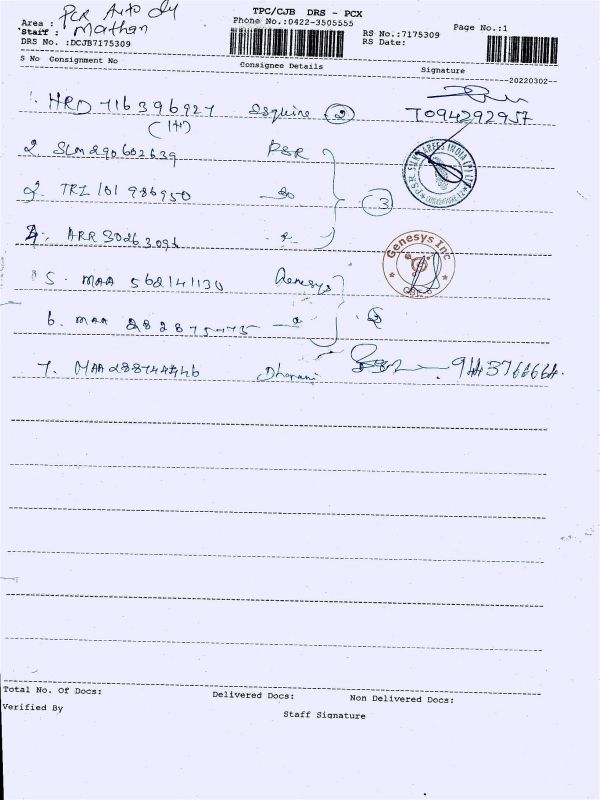 PCR Auto
TPC/CJB DRS - PCX
Area :
Phone No.:0422-3505555
Page No.:1
Staff : Mathan
RS No.:7175309
DRS No. :DCJB7175309
RS Date:
S No Consignment No Consignee Details Signature --20220302--
1. HRD 716396927 Esquire 2 T094292957
(1+1)
2. SLM 290602639 PSR
PSR SILK SAREES INDIA (P) LTD
3. TRZ 101 986950 3
4. ARR 30263096
Genesys Inc
5. MAA 562141130 Genesys
6. MAA 282875475 2
7. MAA 288744446 Dharani
Total No. Of Docs: Delivered Docs: Non Delivered Docs:
Verified By Staff Signature